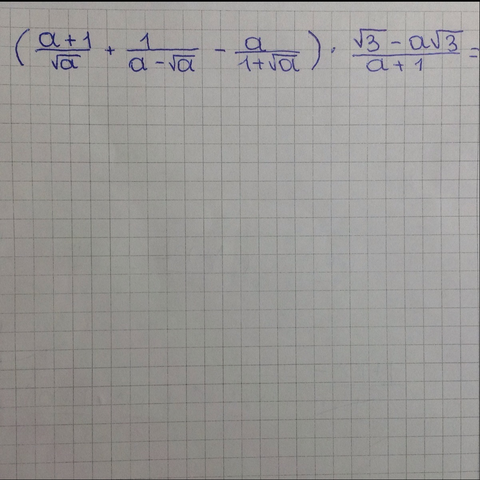 ( (a+1)/√a + 1/(a-√a) - a/(1+√a) ) · (√3 - a√3)/(a+1) =